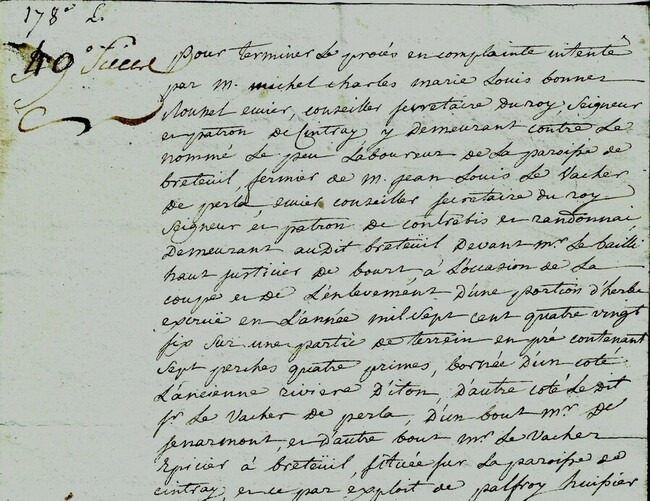 178e L.
49e Piece
pour terminer Le procés en complainte intenté
par m. michel charles marie Louis bonnet
Rouhel ecuier, conseiller secretaire du roy Seigneur
et patron de Cintray y Demeurant contre Le
nommé Le peu Laboureur de La paroisse de
breteuil fermier de m. jean Louis Le Vacher
De perla ecuier conseiller secretaire du roy
Seigneur et patron de contrebis et randonnai
Demeurant audit breteüil Devant mr. Le bailli
haut justicier de bourt à L'occasion de La
coupe et de L'enlevement D'une portion D'herbe
excruë en L'année mil sept cent quatre vingt
six sur une partie de terrein en pré contenant
sept perches quatre primes, bornée D'un coté
L'ancienne riviere D'iton, D'autre coté Le dit
sr. Le Vacher De perla, D'un bout mr. De
senarmont, et D'autre bout mr. Le Vacher
Epicier à breteüil, située sur La paroisse de
cintray, et ce par exploit de palfroy huissier